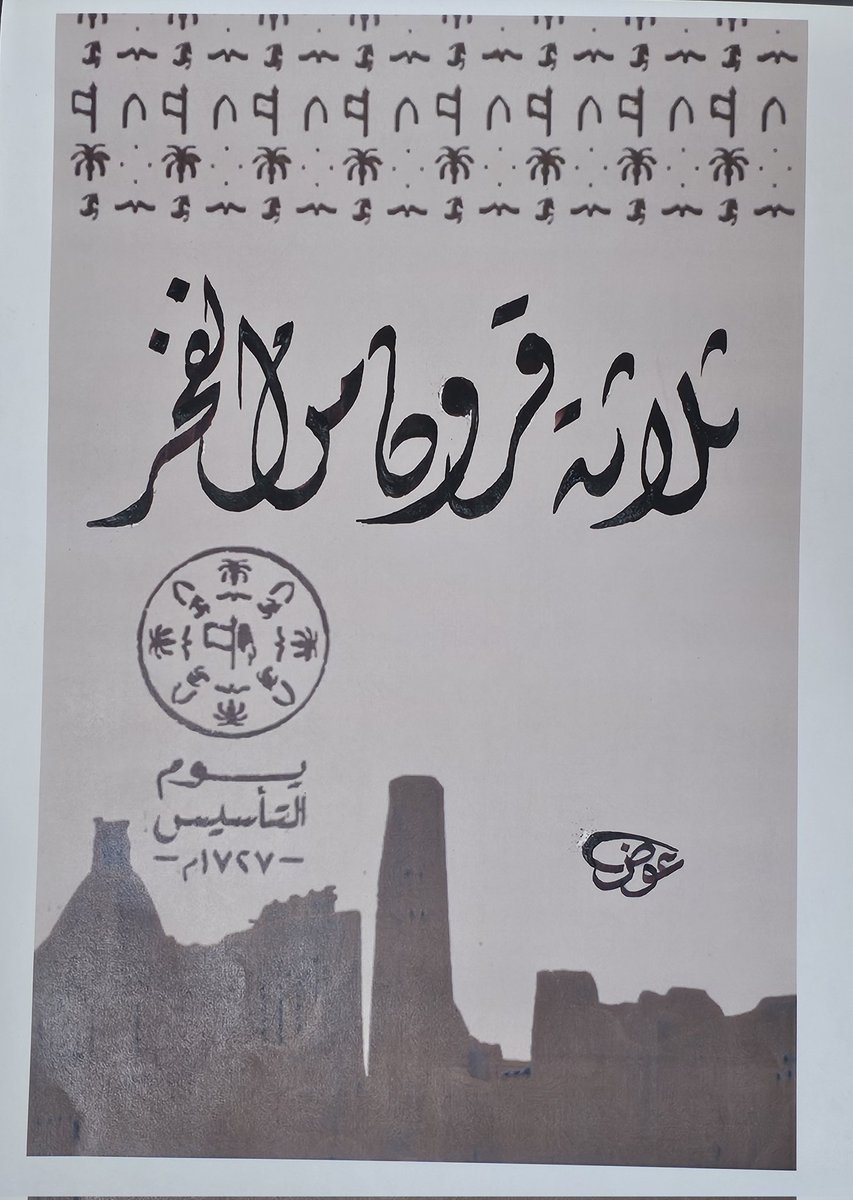 ثلاثة قرون من الفخر
يوم
التأسيس
-١٧٢٧م-
عوض